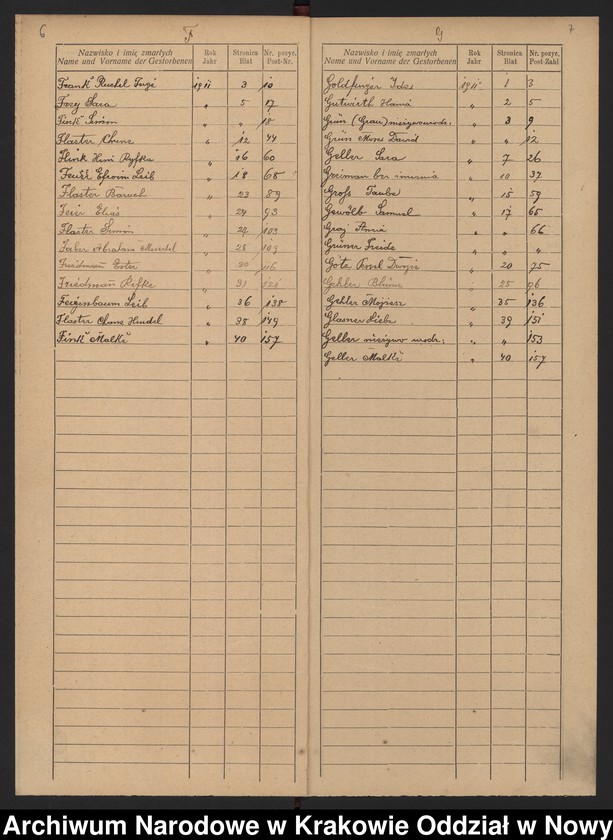 6
F
Nazwisko i imię zmarłych
Name und Vorname der Gestorbenen
Rok
Jahr
Stronica
Blat
Nr. pozyc.
Post-Nr.
Frank Ruchel 1911 3 10
Sara " 5 17
Fink Simon " " 18
Flaster Chune " 12 44
Flink Hini Ryfka " 16 60
Efroim Leib " 18 68
Flaster Baruch " 23 89
Feir Eliás " 24 93
Flaster Simon " 27 103
Abraham " 28 109
Friedman Ester " 30 116
Friedman Rifke " 31 121
Feigenbaum Leib " 36 138
Flaster Chane Hindel " 38 149
Fink Malke " 40 157
G
7
Nazwisko i imię zmarłych
Name und Vorname der Gestorbenen
Rok
Jahr
Stronica
Blat
Nr. pozyc.
Post-Zahl
Goldfinger Ides 1911 1 3
Gutwirth Hania " 2 5
Grün (Grau) " 3 9
Grün Moses Dawid " " 12
Geller Sara " 7 26
Greiman bez imienia " 10 37
Gross Taube " 15 59
Gewölb Samuel " 17 65
Anna " " 66
Grüner Freide " " "
Götz " 20 75
Gehler Blüme " 25 96
Gehler Mojżesz " 35 136
Glasner Liebe " 39 151
Geller nieżywo urodz. " " 153
Geller Malke " 40 157
Archiwum Narodowe w Krakowie Oddział w Nowy